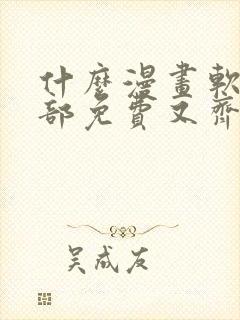 什麼漫畫軟
部免費又齊
吴成友